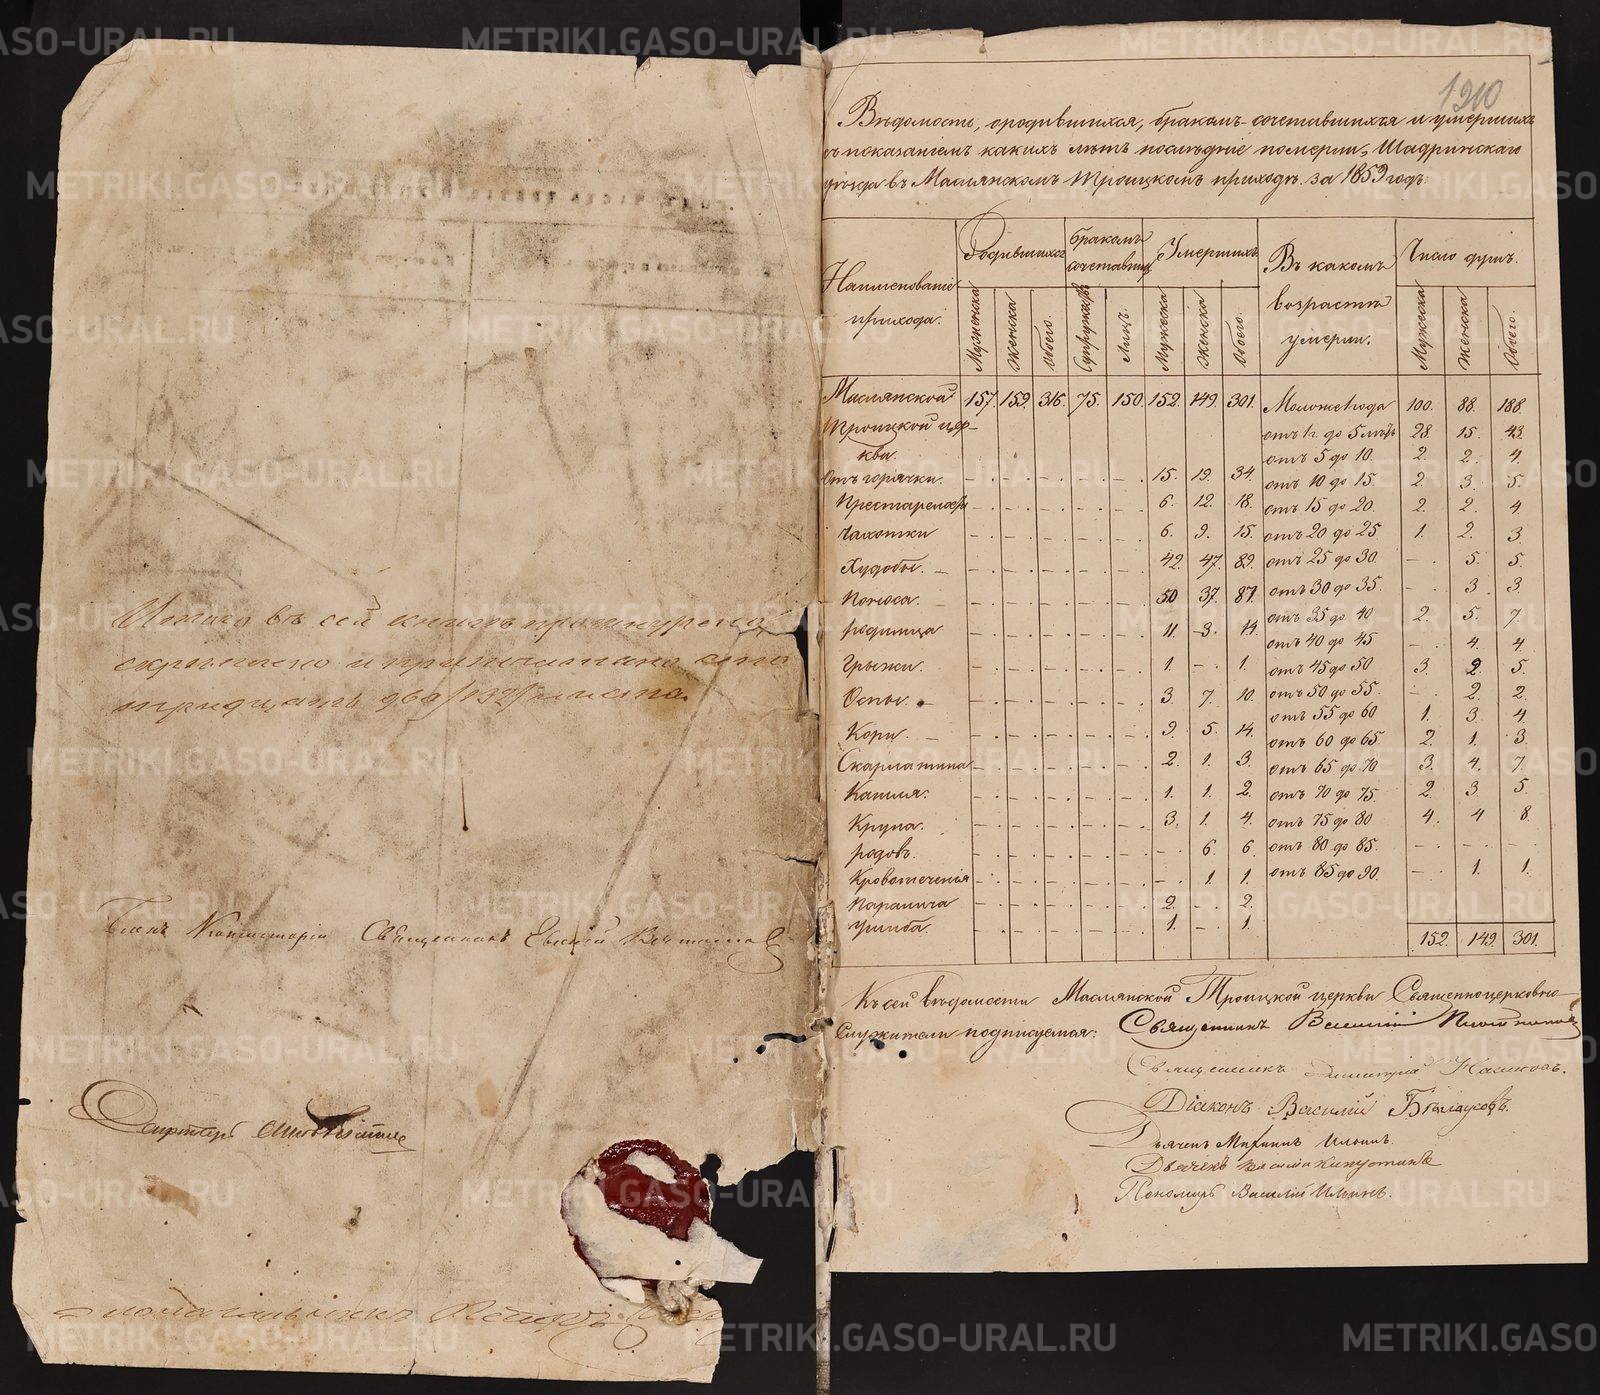 Итого въ сей книгѣ прошнурено,
скрѣплено и припечатано сто
тридцать два /132/ листа.
Членъ Консисторіи Священникъ Евгеній
Секретарь
Столоначальникъ Петръ
1210
Вѣдомость, о родившихся, бракомъ сочетавшихся и умершихъ
съ показаніемъ какихъ лѣтъ послѣдніе померли, Шадринскаго
уѣзда въ Маслянскомъ Троицкомъ приходѣ за 1859 годъ.
Наименованіе прихода. Родившихся бракомъ сочетавших Умершихъ Въ какомъ возрастѣ умерли. Число душъ.
Мужеска Женска Обоего. Супружествъ Лицъ. Мужеска Женска Обоего. Мужеска Женска Обоего.
Маслянской 157. 159. 316. 75. 150. 152. 149. 301. Моложе 1 года 100. 88. 188.
Троицкой цер- отъ 1 г. до 5 лѣтъ 28. 15. 43.
кви. отъ 5 до 10. 2. 2. 4.
Отъ горячки. 15. 19. 34. отъ 10 до 15. 2. 3. 5.
Престарелости 6. 12. 18. отъ 15 до 20. 2. 2. 4.
Чахотки 6. 9. 15. отъ 20 до 25 1. 2. 3.
Худобы. 42. 47. 89. отъ 25 до 30. - 5. 5.
Поноса. 50 37. 87. отъ 30 до 35. - 3. 3.
родимца 11. 3. 14. отъ 35 до 40 2. 5. 7.
отъ 40 до 45 - 4. 4.
Грыжи. 1. - 1. отъ 45 до 50 3. 2. 5.
Оспы. 3. 7. 10. отъ 50 до 55. - 2. 2.
отъ 55 до 60 1. 3. 4.
Кори. 9. 5. 14. отъ 60 до 65. 2. 1. 3.
Скарлатина 2. 1. 3. отъ 65 до 70 3. 4. 7.
Кашля. 1. 1. 2. отъ 70 до 75. 2. 3. 5.
Крупа. 3. 1. 4. отъ 75 до 80 4. 4 8.
родовъ. - 6. 6. отъ 80 до 85. - - -
Кровотеченія - 1. 1. отъ 85 до 90. - 1. 1.
Паралича 2. - 2.
Ушиба. 1. - 1.
152. 149. 301.
Къ сей вѣдомости Маслянской Троицкой церкви Священноцерковно-
Служители подписуемся: Священникъ Василій Плотниковъ
Священникъ Димитрій
Діаконъ Василій
Дьячекъ Ильинъ.
Дьячекъ
Пономарь Василій Ильинъ.
METRIKI.GASO-URAL.RU